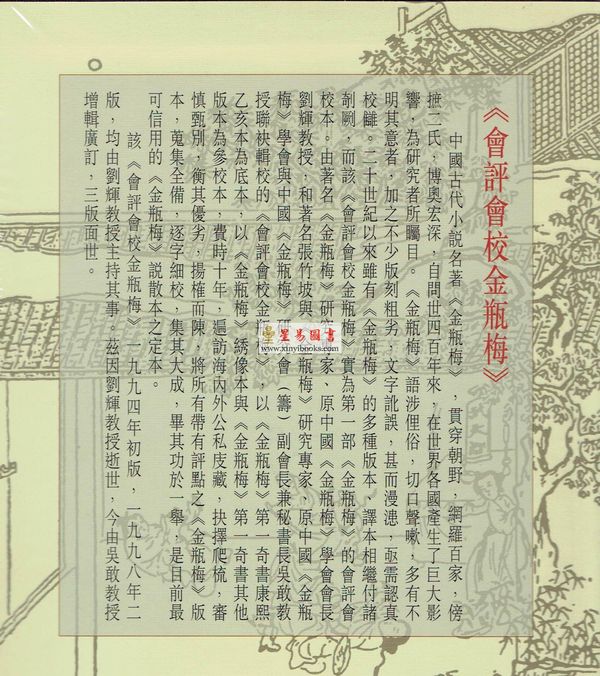 《會評會校金瓶梅》
中國古代小說名著《金瓶梅》，貫穿朝野，網羅百家，傍
摭二氏，博奧宏深，自問世四百年來，在世界各國產生了巨大影
響，為研究者所矚目。《金瓶梅》語涉俚俗，切口聲嗽，多有不
明其意者，加之不少版刻粗劣，文字訛誤，甚而漫漶，亟需認真
校讎。二十世紀以來雖有《金瓶梅》的多種版本、譯本相繼付諸
剞劂，而該《會評會校金瓶梅》實為第一部《金瓶梅》的會評會
校本。由著名《金瓶梅》研究家、原中國《金瓶梅》學會會長
劉輝教授，和著名張竹坡與瓶梅》研究專家，原中國《金瓶
梅》學會與中國《金瓶梅》研會（籌）副會長兼秘書長吳敢教
授聯袂輯校的《會評會校金》，以《金瓶梅》第一奇書康熙
乙亥本為底本，以《金瓶梅》綉像本與《金瓶梅》第一奇書其他
版本為參校本，費時十年，遍訪海內外公私庋藏，抉擇爬梳，審
慎甄別，衡其優劣，揚榷而陳，將所有帶有評點之《金瓶梅》版
本，蒐集全備，逐字細校，集其大成，畢其功於一舉，是目前最
可信用的《金瓶梅》說散本之定本。
該《會評會校金瓶梅》一九九四年初版，一九九八年二
版，均由劉輝教授主持其事。茲因劉輝教授逝世，今由吳敢教授
增輯廣訂，三版面世。
星易圖書
www.xinyibooks.com